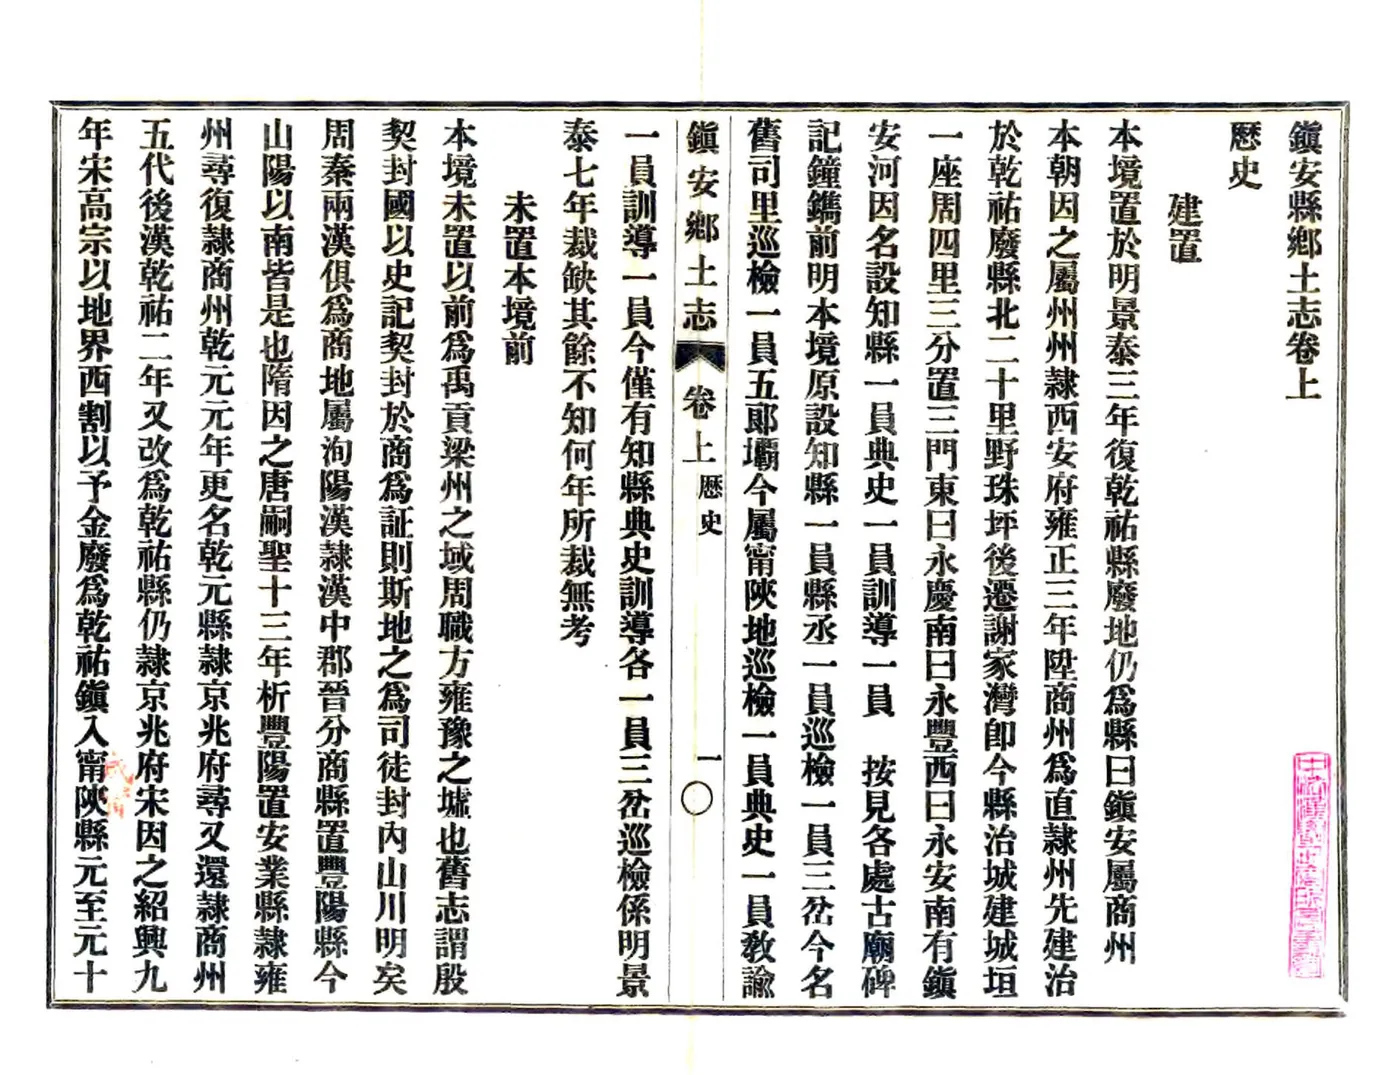 鎭安縣鄕土志卷上
歷史
建置
本境置於明景泰三年復乾祐縣廢地仍爲縣曰鎭安屬商州
本朝因之屬州州隸西安府雍正三年陞商州爲直隸州先建治
於乾祐廢縣北二十里野珠坪後遷謝家灣卽今縣治城建城垣
一座周四里三分置三門東曰永慶南曰永豐西曰永安南有鎭
安河因名設知縣一員典史一員訓導一員 按見各處古廟碑
記鐘鐫前明本境原設知縣一員縣丞一員巡檢一員三岔今名
舊司里巡檢一員五郞壩今屬甯陝地巡檢一員典史一員敎諭
鎭安鄕土志 卷上 歷史 一
一員訓導一員今僅有知縣典史訓導各一員三岔巡檢係明景
泰七年裁缺其餘不知何年所裁無考
未置本境前
本境未置以前爲禹貢梁州之域周職方雍豫之墟也舊志謂殷
契封國以史記契封於商爲証則斯地之爲司徒封內山川明矣
周秦兩漢俱爲商地屬洵陽漢隸漢中郡晉分商縣置豐陽縣今
山陽以南皆是也隋因之唐嗣聖十三年析豐陽置安業縣隸雍
州尋復隸商州乾元元年更名乾元縣隸京兆府尋又還隸商州
五代後漢乾祐二年又改爲乾祐縣仍隸京兆府宋因之紹興九
年宋高宗以地界西割以予金廢爲乾祐鎭入甯陝縣元至元十